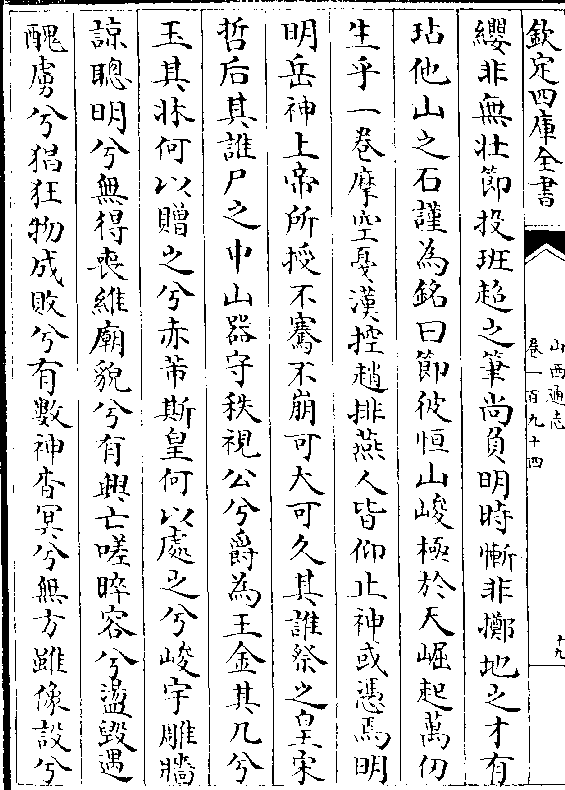 欽定四庫全書
山西通志
卷一百九十四
十九
纓非無壯節投班超之筆尚負明時慚非擲地之才有
玷他山之石謹為銘曰節彼恒山峻極於天崛起萬仞
生乎一卷摩空戛漢控趙排燕人皆仰止神或憑焉明
明岳神上帝所授不騫不崩可大可久其誰祭之皇宋
哲后其誰尸之中山器守秩視公兮爵為王金其几兮
玉其牀何以贈之兮赤芾斯皇何以處之兮峻宇雕牆
諒聰明兮無得喪維廟貌兮有興亡嗟睟容兮盪毀遇
醜虜兮猖狂物成敗兮有數神杳冥兮無方雖像設兮